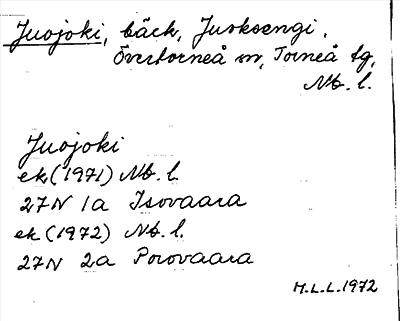 Juojoki, bäck, Juoksengi.
Övertorneå sn, Torneå tg,
Nb. l.
Juojoki
ek (1971) Nb. l.
27N 1a Isovaara
ek (1972) Nb. l.
27N 2a Porovaara
M.L.L. 1972